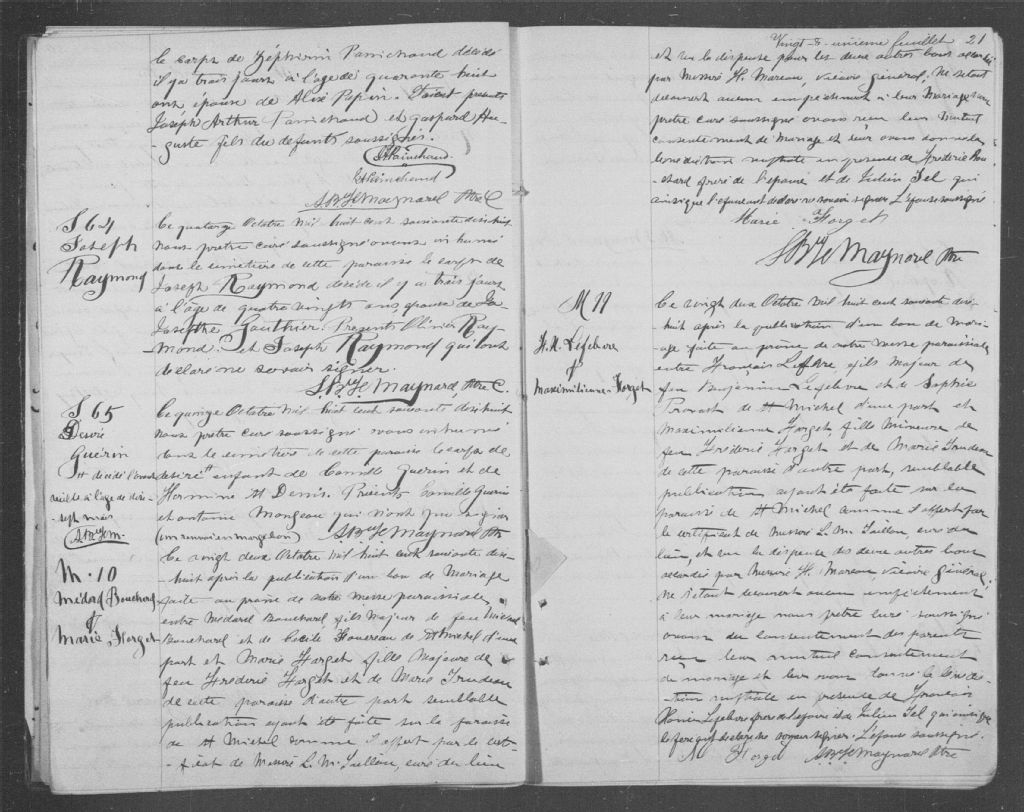 le corps de Zéphirin Painchaud décédé
il y a trois jours à l'age de quarante huit
ans époux de Alixe Papin. Furent presents
Joseph Arthur Painchaud et Gaspard Au-
-guste fils du defunts soussignés.
Painchaud.
Painchaud
Maynard Ptre C
S 64
Joseph
Raymond
Ce quatorze Octobre mil huit cent soixante dixhuit
nous pretre curé soussigné avons inhumé
dans le cimetière de cette paroisse le corps de
Joseph Raymond décédé il y a trois jours
à l'âge de quatre vingts ans epoux de
Josepthe Gauthier. Presents Olivier Ray-
-mond. et Joseph Raymond qui ont
declaré ne savoir signer.
Maynard, Ptre C.
S 65
Guerin
Ce quinze Octobre mil huit cent soixante dixhuit
nous pretre curé soussigné avons inhumé
dans le cimetière de cette paroisse le corps de
desiré enfant de Camille Guerin et de
Hermine St Denis. Présents Camille Guerin
et Antoine Mongeau qui n'ont pu signer
(un renvoi en marge bon) Maynard Ptre
à l'age de dix-
-sept mois
M. 10
Médard Bouchard
&
Marie Forget
Ce vingt deux Octobre mil huit cent soixante dix-
-huit après la publication d'un ban de Mariage
faite au prone de notre messe paroissiale
entre Médard Bouchard fils Majeur de feu Michel
Bouchard et de Cecile de St Michel d'une
part et Marie Forget fille Majeure de
feu Frédéric Forget et de Marie Trudeau
de cette paroisse d'autre part semblable
publication ayant été faite sur la paroisse
de St Michel comme il appert par le cert-
-ificat de Messire L. M. Taillon, curé du lieu
Vingt & unième feuillet 21
et vu la dispense pour les deux autres bans accordée
par Messire H. Moreau, vicaire général, ne s'etant
decouvert aucun empêchement à leur Mariage nous
pretre curé soussigné avons reçu leur mutuel
consentement de Mariage et leur avons donné la
benediction nuptiale en presence de Frederic Bou-
-chard frère de l'epoux et de Julien Tel qui
ainsi que l'epoux ont declaré ne savoir signer L'épouse soussigné
Marie Forget
Maynard Ptre
M 11
Lefebvre
&
Maximilienne Forget
Ce vingt deux Octobre mil huit cent soixante dix-
huit après la publication d'un ban de mari-
-age faite au prone de notre messe paroissiale
entre François Lefebvre fils majeur de
feu Benjamin Lefebvre et de Sophie
Provost de St Michel d'une part et
Maximilienne Forget, fille Mineure de
feu Frédéric Forget et de Marie Trudeau
de cette paroisse d'autre part, semblable
publication ayant été faite sur la
paroisse de St Michel comme il appert par
le certificat de messire L. M. Taillon, curé du
lieu, et vu la dispense des deux autres bans
accordés par Messire H. Moreau, vicaire général,
ne s'etant decouvert aucun empêchement
à leur mariage nous pretre curé soussigné
avons du consentement des parents
reçu leur mutuel consentement
de mariage et leur avons donné la bénédic-
-tion nuptiale en presence de François
Lefebvre de l'epoux et de Julien Tel qui ainsi que
declaré ne savoir signer. L'épouse soussigné.
M Forget Maynard Ptre